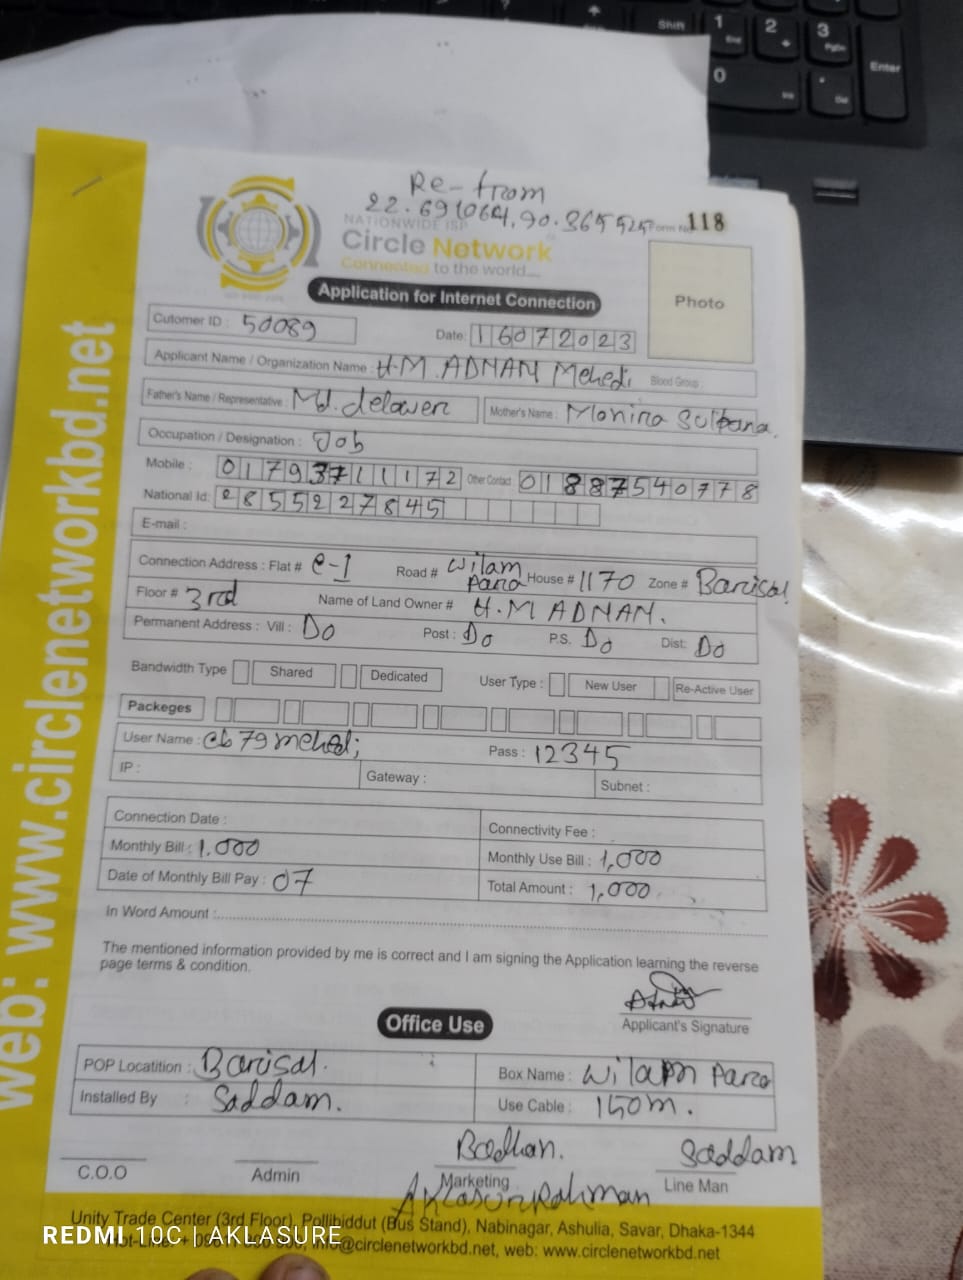 Re-from
22.691064,90.365525 Form No 118
NATIONWIDE ISP
Circle Network
Connected to the world...
Application for Internet Connection
Photo
Cutomer ID : 50089
Date: 16072023
Applicant Name / Organization Name : H.M. ADNAN Mehedi Blood Group :
Father's Name / Representative : Md. delower Mother's Name : Monira Sultana.
Occupation / Designation : Job
Mobile : 01793711172 Other Contact 01887540778
National Id: 2855227845
E-mail :
Connection Address : Flat # e-1 Road # Wilam Para House # 1170 Zone # Barisal
Floor # 3rd Name of Land Owner # H.M ADNAN.
Permanent Address : Vill : Do Post : Do P.S. Do Dist: Do
Bandwidth Type Shared Dedicated User Type : New User Re-Active User
Packeges
User Name : cb79mehedi Pass : 12345
IP : Gateway : Subnet :
Connection Date : Connectivity Fee :
Monthly Bill : 1,000 Monthly Use Bill : 1,000
Date of Monthly Bill Pay : 07 Total Amount : 1,000
In Word Amount :
The mentioned information provided by me is correct and I am signing the Application learning the reverse
page terms & condition.
Applicant's Signature
Office Use
POP Locatition : Barisal. Box Name : Wilam Para
Installed By : Saddam. Use Cable : 150m.
Badhan. Saddam
C.O.O Admin Marketing Line Man
Aklasur Rahman
Unity Trade Center (3rd Floor), Pollibiddut (Bus Stand), Nabinagar, Ashulia, Savar, Dhaka-1344
info@circlenetworkbd.net, web: www.circlenetworkbd.net
web: www.circlenetworkbd.net
REDMI 10C | AKLASURE
Shift
1
End
2
3
PgDn
0
Ins
Del
Enter